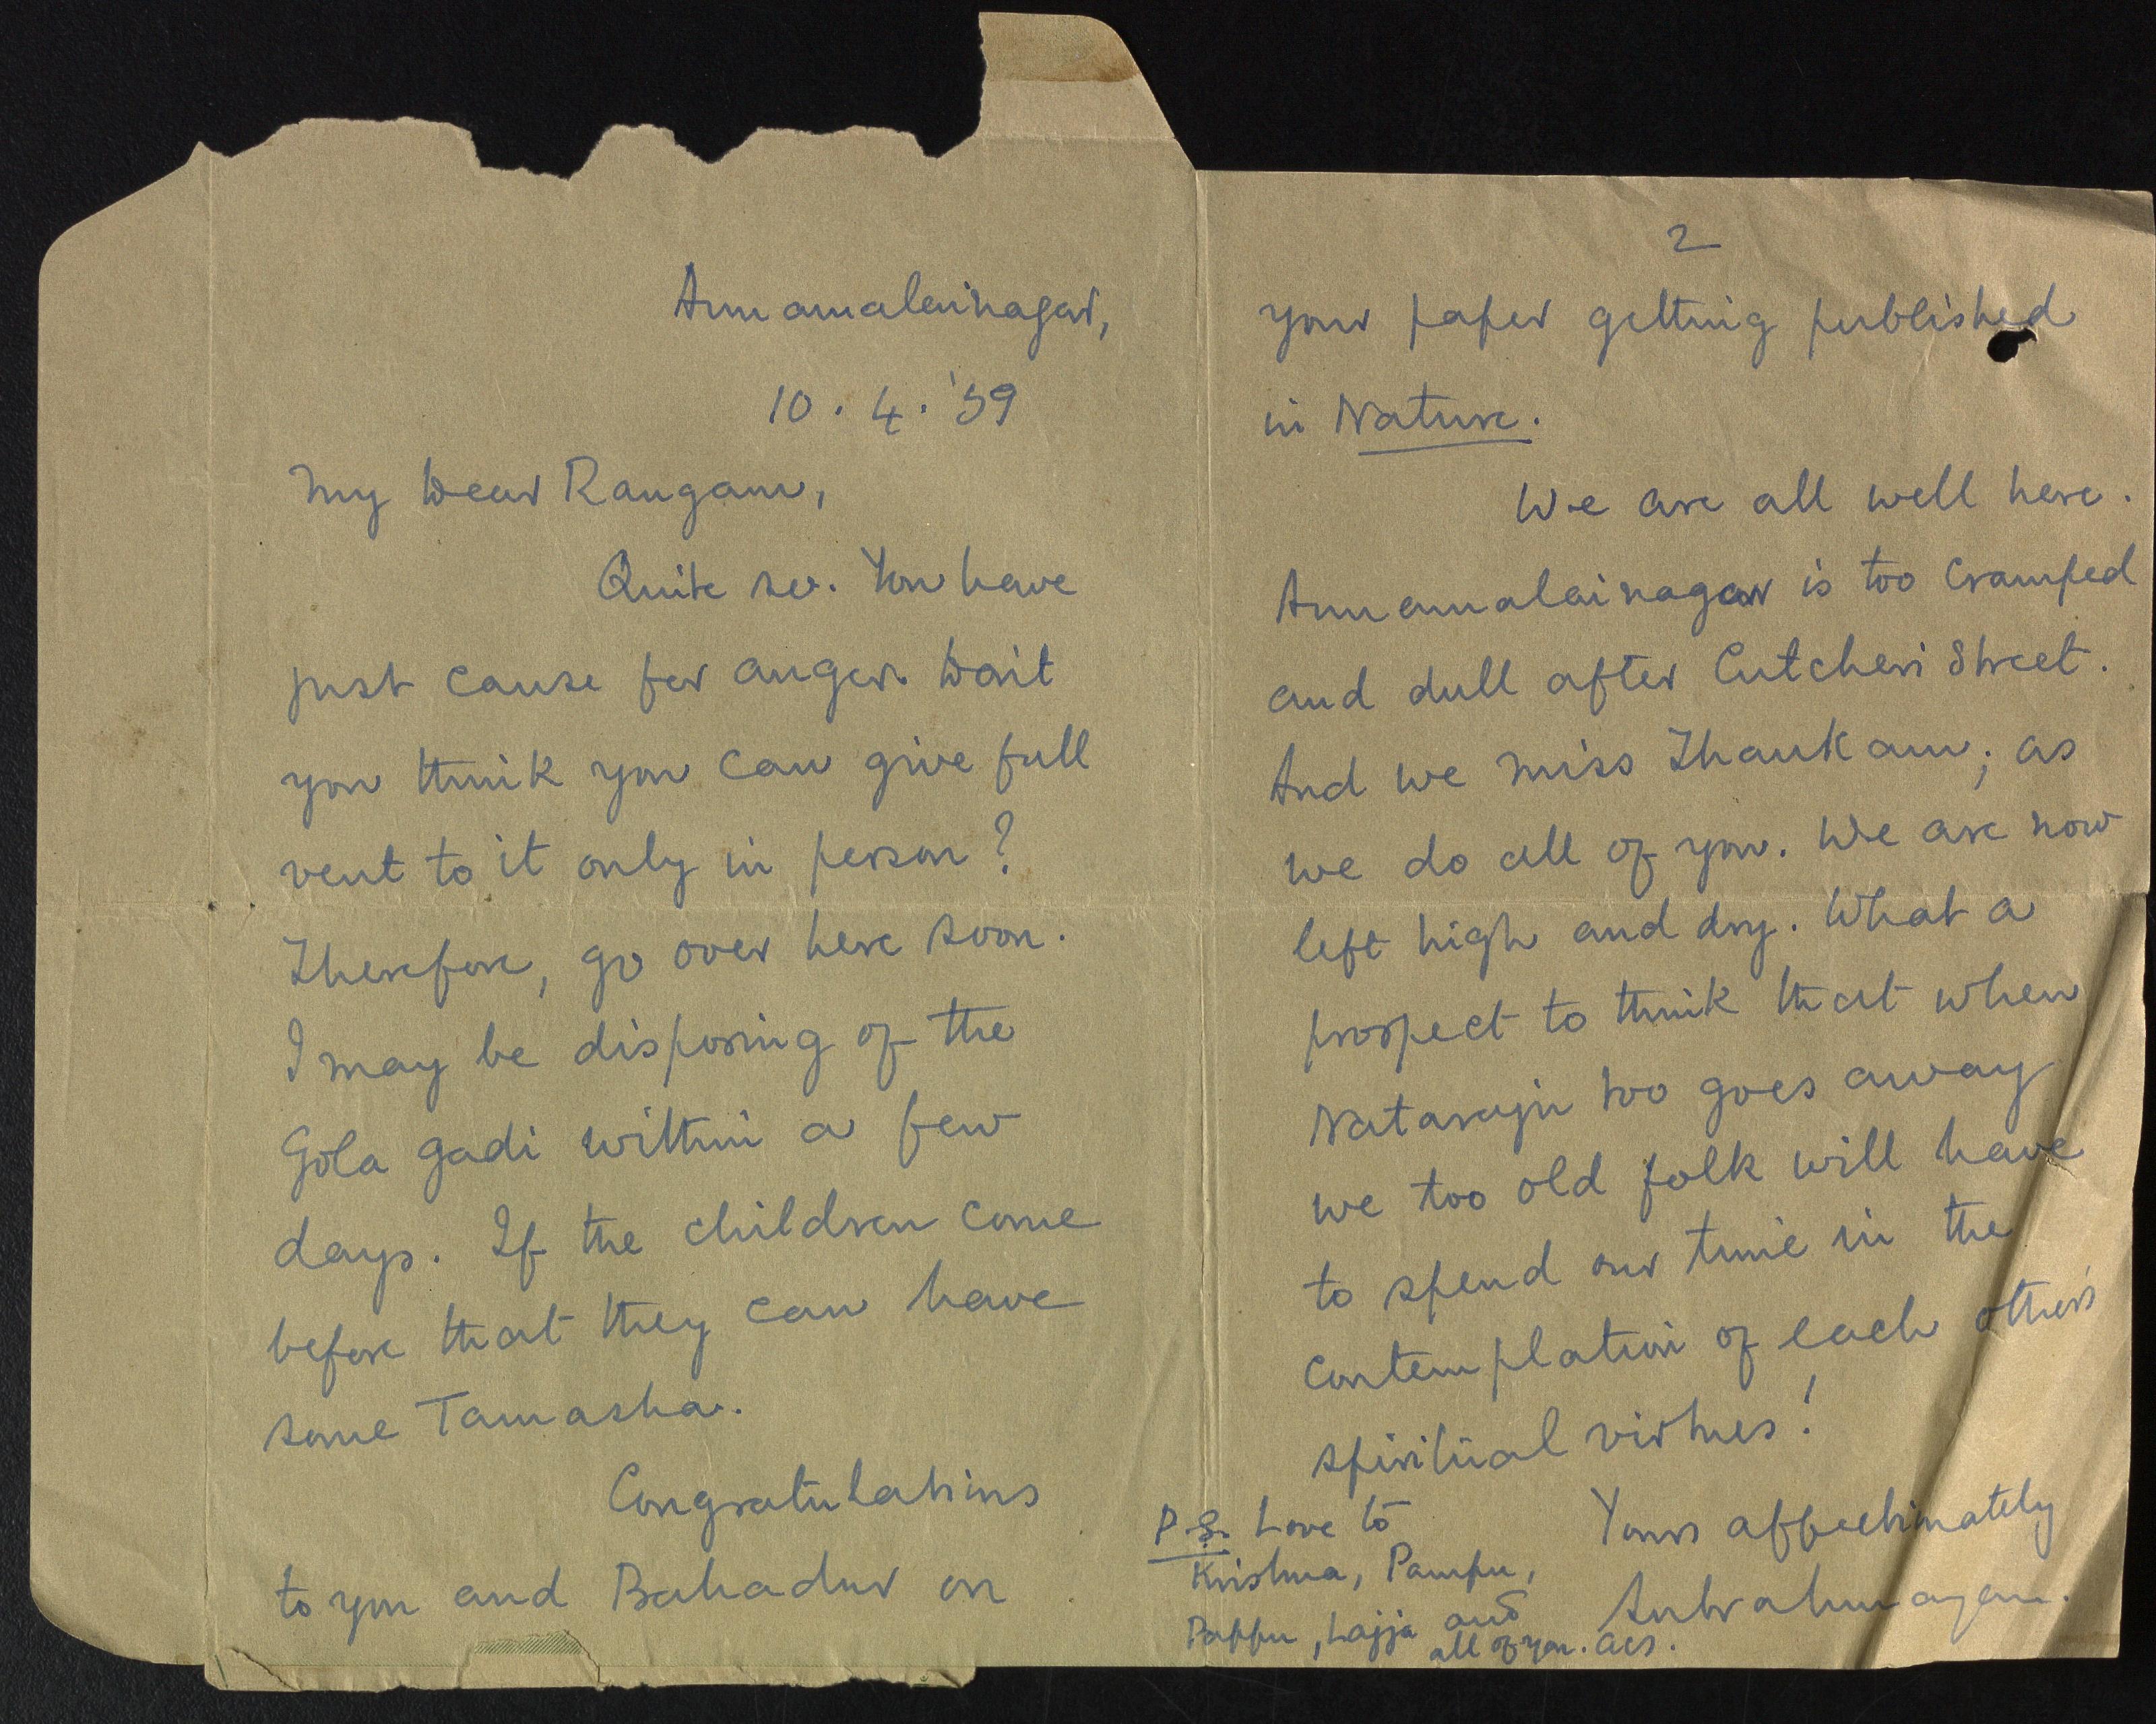 Annamalainagar,
10. 4. '59
My Dear Rangam,
Quite so. You have
just cause for anger. Dont
you think you can give full
vent to it only in person?
Therefore, go over here soon.
I may be disposing of the
Gola gadi within a few
days. If the children come
before that they can have
some Tamasha.
Congratulations
to you and Bahadur on
2
your paper getting published
in Nature.
We are all well here.
Annamalainagar is too cramped
and dull after Cutcheri Street.
And we miss Thankam; as
we do all of you. We are now
left high and dry. What a
prospect to think that when
Nataraju too goes away
we too old folk will have
to spend our time in the
contemplation of each other's
spiritual virtues!
Yours affectionately
P.S. Love to
Krishna, Pampu,
Pappu, Lajja and
all of you. acs.